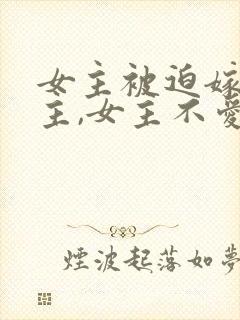 女主被迫嫁
主,女主不爱
煙波起落如夢